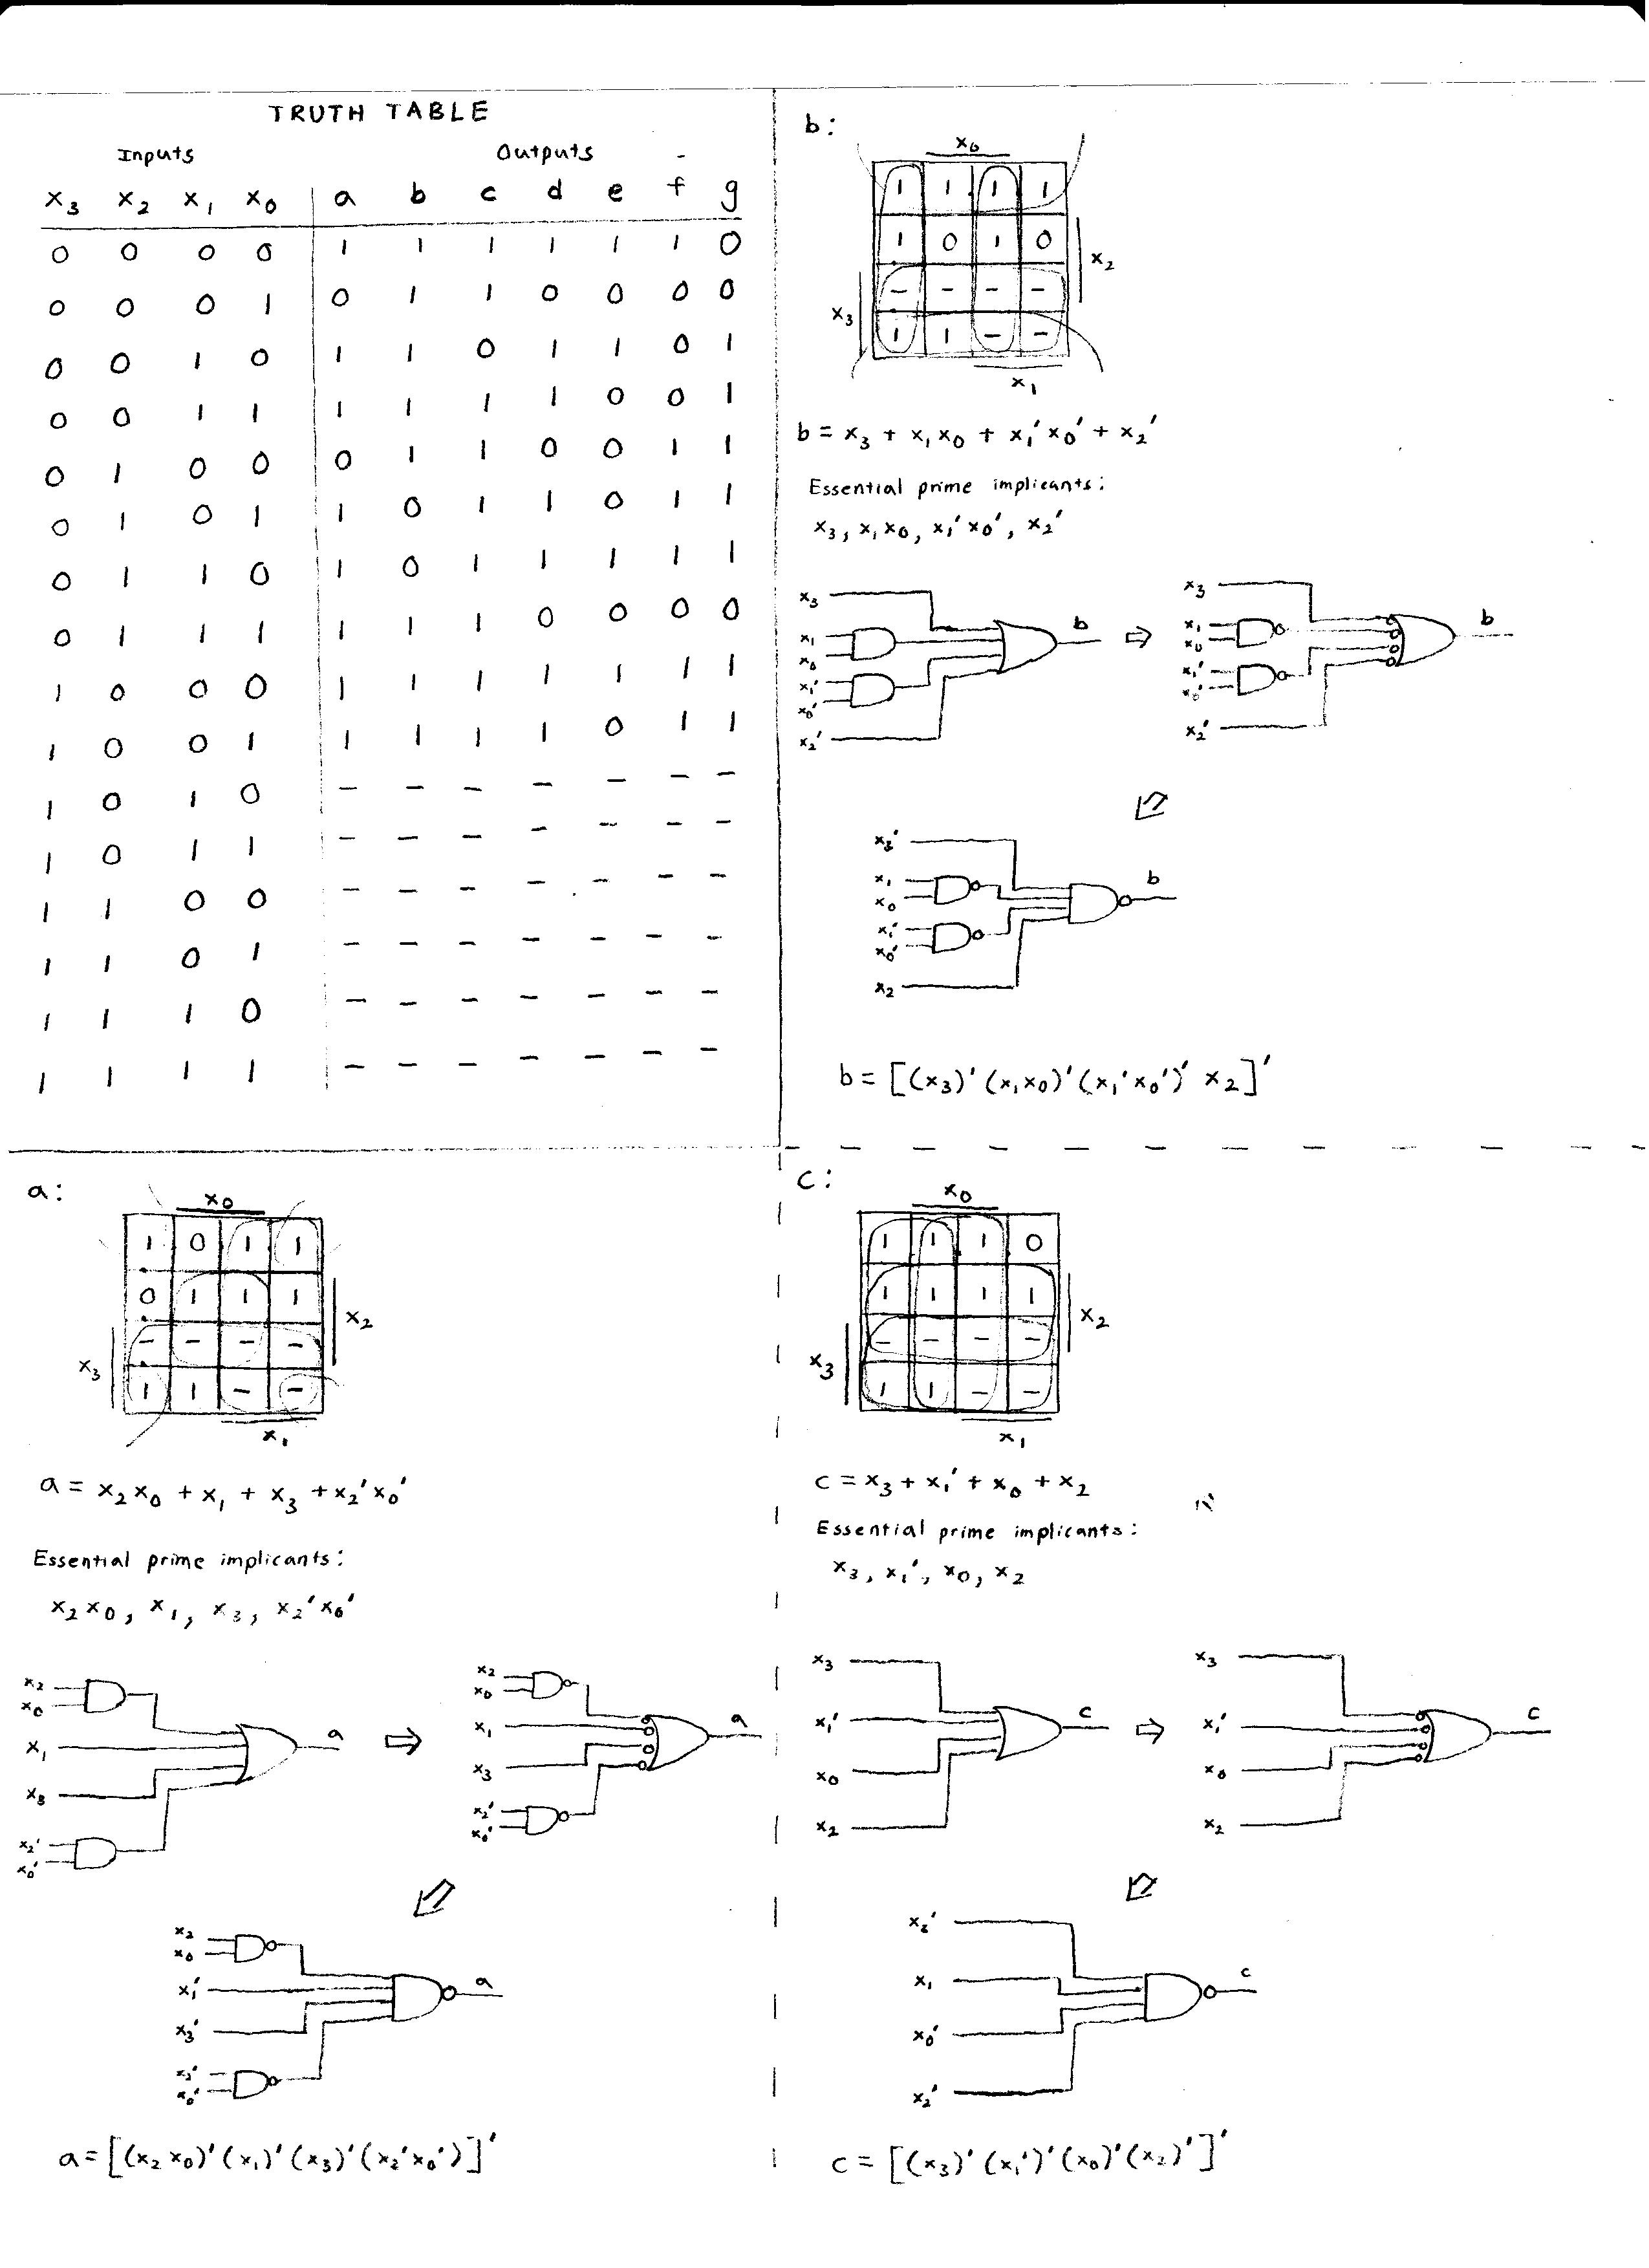 TRUTH TABLE
Inputs Outputs
x₃ x₂ x₁ x₀ a b c d e f g
0 0 0 0 1 1 1 1 1 1 0
0 0 0 1 0 1 1 0 0 0 0
0 0 1 0 1 1 0 1 1 0 1
0 0 1 1 1 1 1 1 0 0 1
0 1 0 0 0 1 1 0 0 1 1
0 1 0 1 1 0 1 1 0 1 1
0 1 1 0 1 0 1 1 1 1 1
0 1 1 1 1 1 1 0 0 0 0
1 0 0 0 1 1 1 1 1 1 1
1 0 0 1 1 1 1 1 0 1 1
1 0 1 0 – – – – – – –
1 0 1 1 – – – – – – –
1 1 0 0 – – – – – – –
1 1 0 1 – – – – – – –
1 1 1 0 – – – – – – –
1 1 1 1 – – – – – – –
b:
x₀
1 1 1 1
1 0 1 0
x₂
– – – –
x₃
1 1 – –
x₁
b = x₃ + x₁x₀ + x₁'x₀' + x₂'
Essential prime implicants:
x₃, x₁x₀, x₁'x₀', x₂'
x₃
x₁
x₀
x₁'
x₀'
x₂'
b
⇨
x₃
x₁
x₀
x₁'
x₀'
x₂'
b
x₃'
x₁
x₀
x₁'
x₀'
x₂
b
b = [(x₃)'(x₁x₀)'(x₁'x₀')' x₂]'
a:
x₀
1 0 1 1
0 1 1 1
x₂
– – – –
x₃
1 1 – –
x₁
a = x₂x₀ + x₁ + x₃ + x₂'x₀'
Essential prime implicants:
x₂x₀, x₁, x₃, x₂'x₀'
x₂
x₀
x₁
x₃
x₂'
x₀'
a
⇨
x₂
x₀
x₁
x₃
x₂'
x₀'
a
x₂
x₀
x₁'
x₃'
x₀'
a
a = [(x₂x₀)'(x₁)'(x₃)'(x₂'x₀')]'
c:
x₀
1 1 1 0
1 1 1 1
x₂
– – – –
x₃
1 1 – –
x₁
c = x₃ + x₁' + x₀ + x₂
Essential prime implicants:
x₃, x₁', x₀, x₂
x₃
x₁'
x₀
x₂
c
⇨
x₃
x₁'
x₀
x₂
c
x₁
x₀'
x₂'
c
c = [(x₃)'(x₁')'(x₀)'(x₂)']'